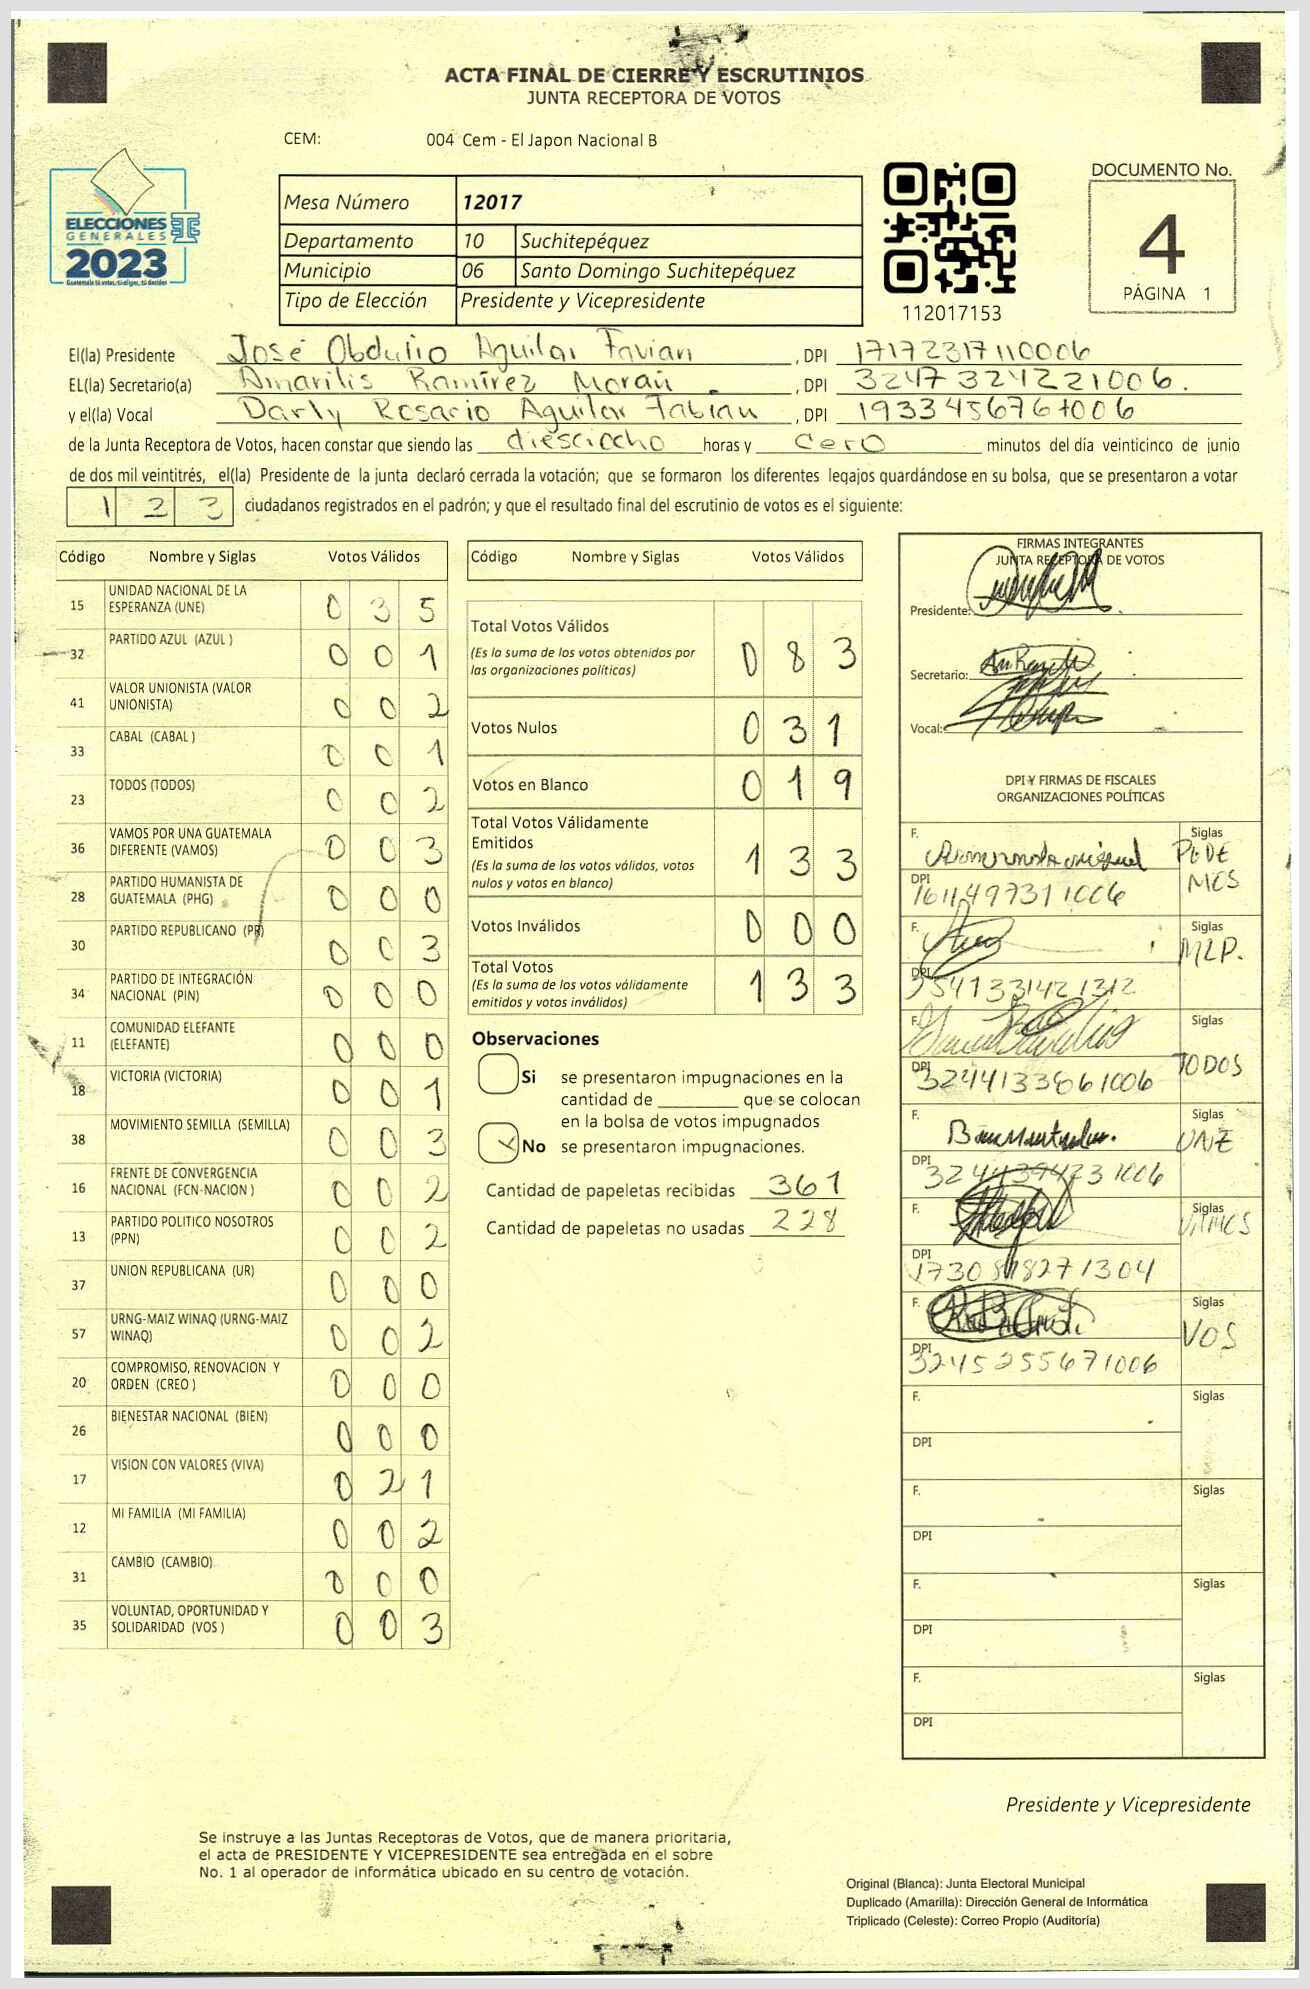 ACTA FINAL DE CIERRE Y ESCRUTINIOS
JUNTA RECEPTORA DE VOTOS
CEM: 004 Cem - El Japon Nacional B
ELECCIONES
GENERALES
2023
Guatemala tú votas, tú eliges, tú decides
Mesa Número 12017
Departamento 10 Suchitepéquez
Municipio 06 Santo Domingo Suchitepéquez
Tipo de Elección Presidente y Vicepresidente
112017153
DOCUMENTO No.
4
PÁGINA 1
El(la) Presidente José Obdulio Aguilar Favian, DPI 17172317110006
EL(la) Secretario(a) Amarilis Ramírez Morán, DPI 3247324221006.
y el(la) Vocal Darly Rosario Aguilar Fabian, DPI 1933456761006
de la Junta Receptora de Votos, hacen constar que siendo las diesciocho horas y cero minutos del día veinticinco de junio
de dos mil veintitrés, el(la) Presidente de la junta declaró cerrada la votación; que se formaron los diferentes legajos guardándose en su bolsa, que se presentaron a votar
1 2 3 ciudadanos registrados en el padrón; y que el resultado final del escrutinio de votos es el siguiente:
Código Nombre y Siglas Votos Válidos
15 UNIDAD NACIONAL DE LA ESPERANZA (UNE) 0 3 5
32 PARTIDO AZUL (AZUL ) 0 0 1
41 VALOR UNIONISTA (VALOR UNIONISTA) 0 0 2
33 CABAL (CABAL ) 0 0 1
23 TODOS (TODOS) 0 0 2
36 VAMOS POR UNA GUATEMALA DIFERENTE (VAMOS) 0 0 3
28 PARTIDO HUMANISTA DE GUATEMALA (PHG) 0 0 0
30 PARTIDO REPUBLICANO (PR) 0 0 3
34 PARTIDO DE INTEGRACIÓN NACIONAL (PIN) 0 0 0
11 COMUNIDAD ELEFANTE (ELEFANTE) 0 0 0
18 VICTORIA (VICTORIA) 0 0 1
38 MOVIMIENTO SEMILLA (SEMILLA) 0 0 3
16 FRENTE DE CONVERGENCIA NACIONAL (FCN-NACION ) 0 0 2
13 PARTIDO POLITICO NOSOTROS (PPN) 0 0 2
37 UNION REPUBLICANA (UR) 0 0 0
57 URNG-MAIZ WINAQ (URNG-MAIZ WINAQ) 0 0 2
20 COMPROMISO, RENOVACION Y ORDEN (CREO ) 0 0 0
26 BIENESTAR NACIONAL (BIEN) 0 0 0
17 VISION CON VALORES (VIVA) 0 2 1
12 MI FAMILIA (MI FAMILIA) 0 0 2
31 CAMBIO (CAMBIO) 0 0 0
35 VOLUNTAD, OPORTUNIDAD Y SOLIDARIDAD (VOS ) 0 0 3
Código Nombre y Siglas Votos Válidos
Total Votos Válidos 0 8 3
(Es la suma de los votos obtenidos por
las organizaciones políticas)
Votos Nulos 0 3 1
Votos en Blanco 0 1 9
Total Votos Válidamente
Emitidos 1 3 3
(Es la suma de los votos válidos, votos
nulos y votos en blanco)
Votos Inválidos 0 0 0
Total Votos 1 3 3
(Es la suma de los votos válidamente
emitidos y votos inválidos)
Observaciones
Si se presentaron impugnaciones en la
cantidad de ________ que se colocan
en la bolsa de votos impugnados
No se presentaron impugnaciones.
Cantidad de papeletas recibidas 361
Cantidad de papeletas no usadas 228
FIRMAS INTEGRANTES
JUNTA RECEPTORA DE VOTOS
Presidente:
Secretario:
Vocal:
DPI Y FIRMAS DE FISCALES
ORGANIZACIONES POLÍTICAS
F. Siglas
DPI 1611497311006
F. Siglas MLP.
DPI 2541331421312
F. Siglas TODOS
DPI 3244133861006
F. Siglas UNE
DPI 3244394231006
F. Siglas
DPI
F. Siglas VOS
DPI 3245255671006
F. Siglas
DPI
F. Siglas
DPI
F. Siglas
DPI
F. Siglas
DPI
Presidente y Vicepresidente
Se instruye a las Juntas Receptoras de Votos, que de manera prioritaria,
el acta de PRESIDENTE Y VICEPRESIDENTE sea entregada en el sobre
No. 1 al operador de informática ubicado en su centro de votación.
Original (Blanca): Junta Electoral Municipal
Duplicado (Amarilla): Dirección General de Informática
Triplicado (Celeste): Correo Propio (Auditoría)